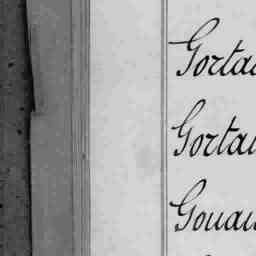 Gorta
Gorta
Goua